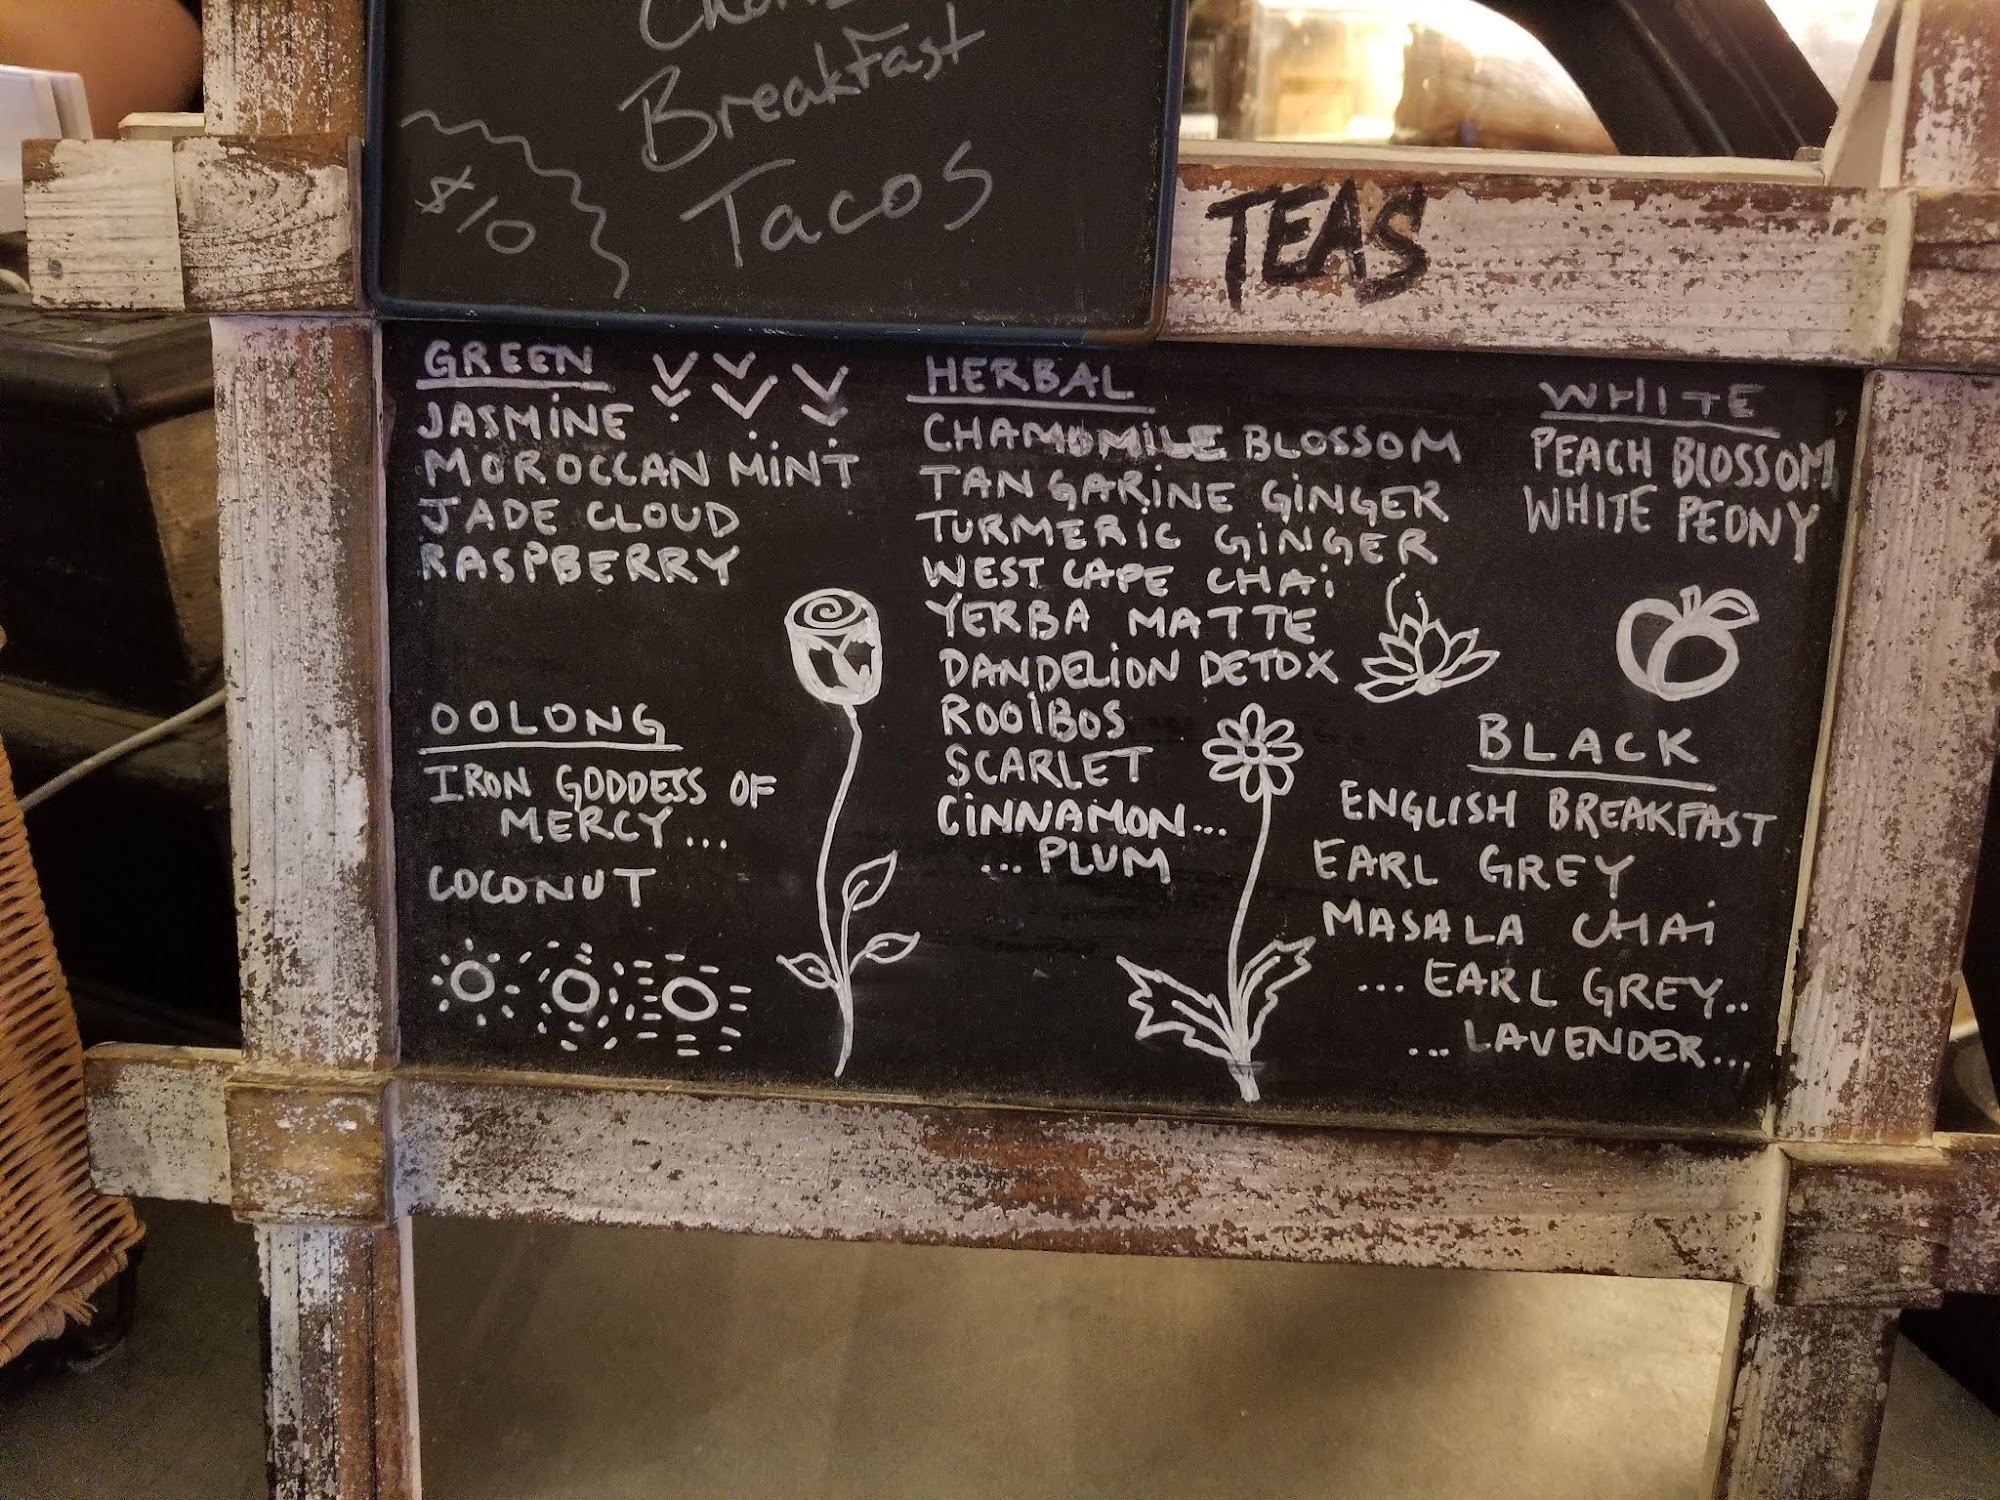 Breakfast
Tacos
$10
TEAS
GREEN
JASMINE
MOROCCAN MINT
JADE CLOUD
RASPBERRY
OOLONG
IRON GODDESS OF
MERCY...
COCONUT
HERBAL
CHAMOMILE BLOSSOM
TANGARINE GINGER
TURMERIC GINGER
WEST CAPE CHAI
YERBA MATTE
DANDELION DETOX
ROOIBOS
SCARLET
CINNAMON...
... PLUM
WHITE
PEACH BLOSSOM
WHITE PEONY
BLACK
ENGLISH BREAKFAST
EARL GREY
MASALA CHAI
... EARL GREY..
... LAVENDER...